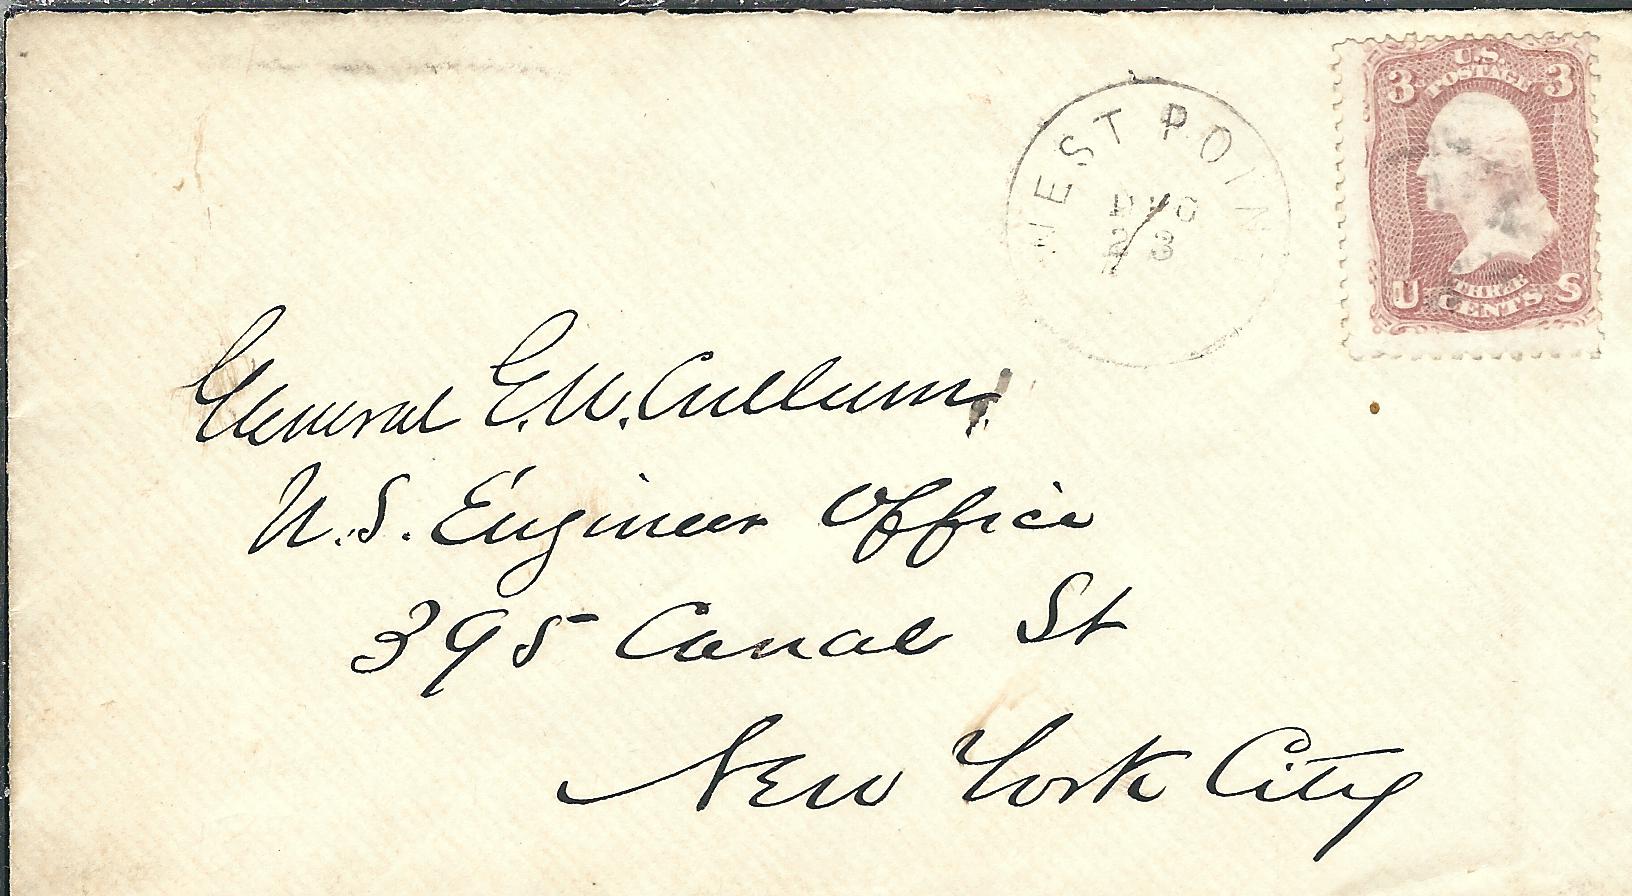 U.S.
POSTAGE
3 3
THREE
CENTS
U S
WEST POINT
23
General G.W. Cullum.
U.S. Engineer Office
395 Canal St
New York City